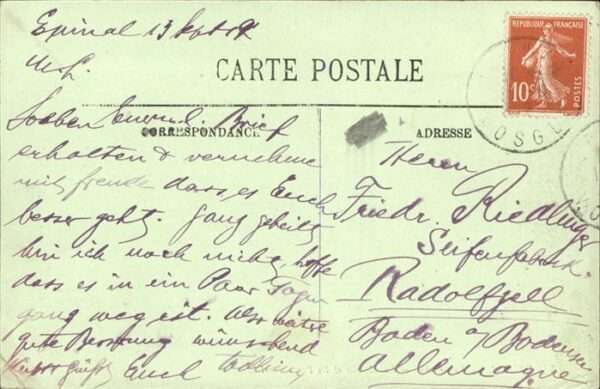 Epinal 13 Sept
M. L.
CARTE POSTALE
RÉPUBLIQUE FRANÇAISE
10c
POSTES
OSG
CORRESPONDANCE
ADRESSE
Soeben Euern l. Brief
erhalten & vernehme
mit freude dass es Euch
besser geht. Ganz geheilt
bin ich noch nicht, hoffe
dass es in ein Paar Tagen
ganz weg ist. Also
gute Besserung wünschend
Euch
Herrn
Friedr. Riedlinger
Seifenfabrik
Radolfzell
Baden a/ Bodensee
Allemagne